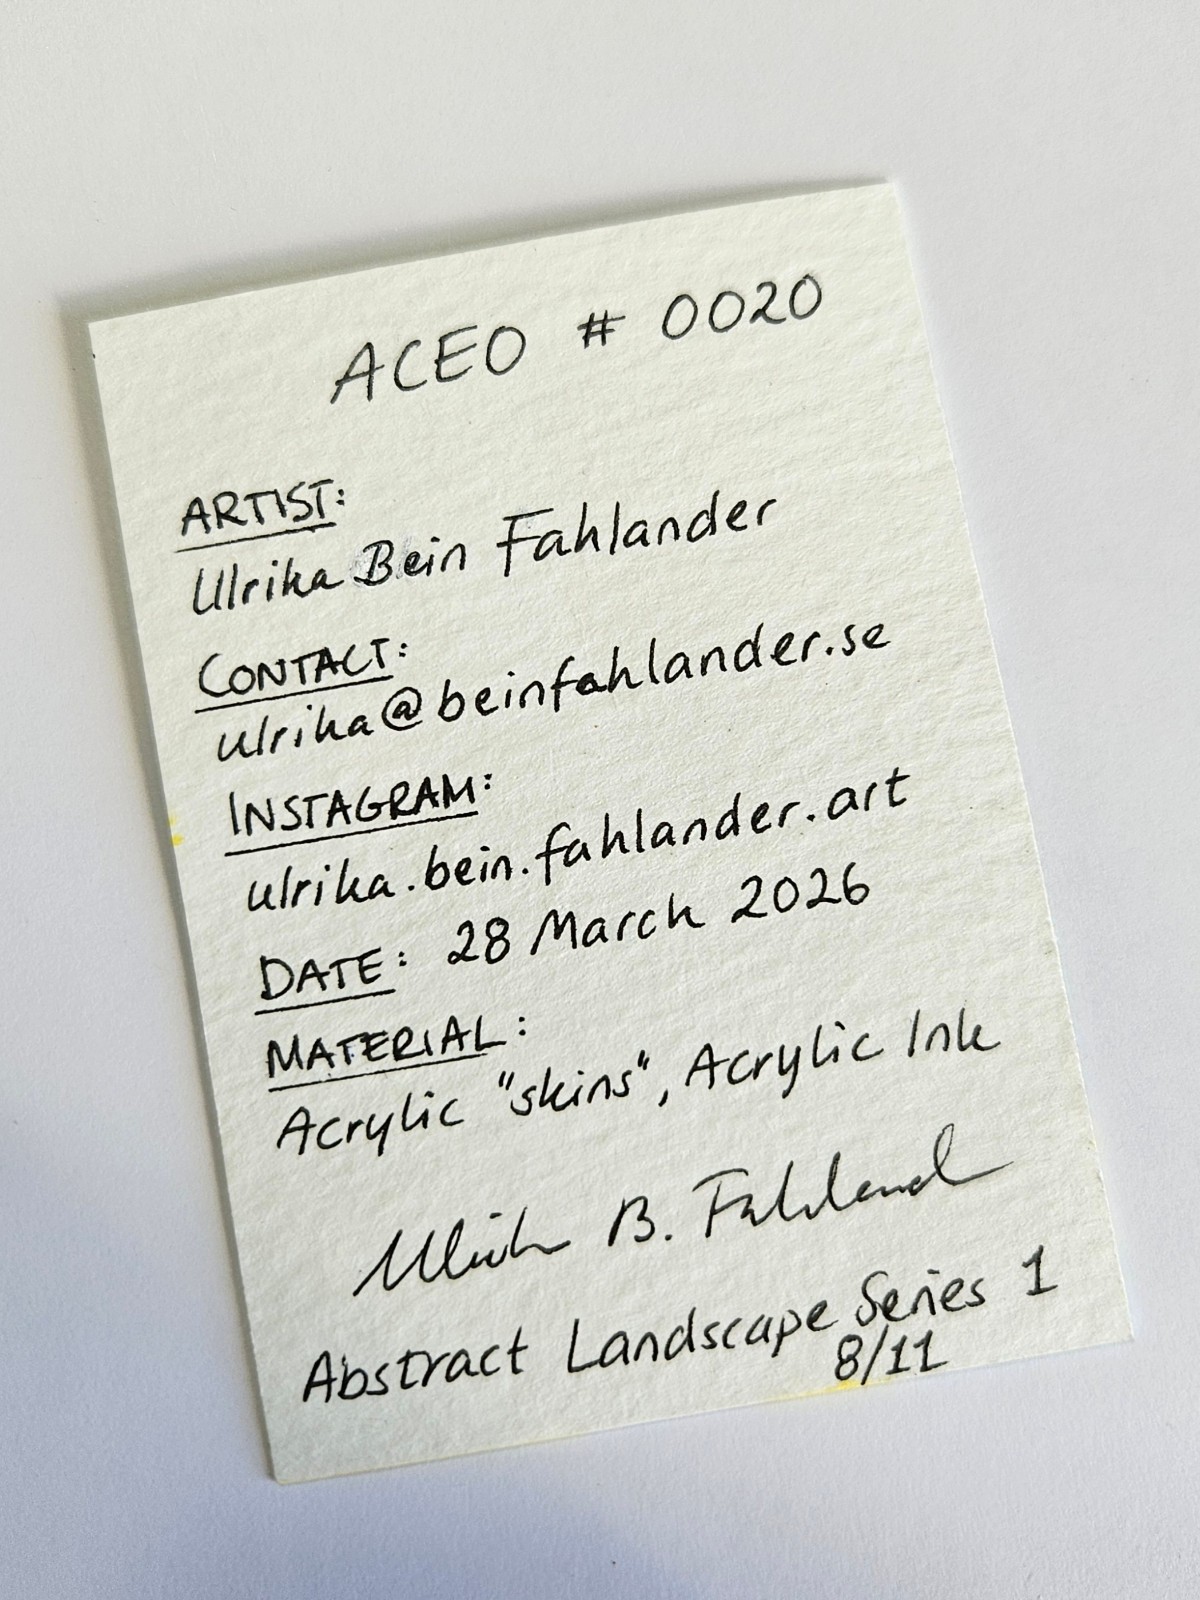 ACEO # 0020
ARTIST:
Ulrika Bein Fahlander
CONTACT:
ulrika@beinfahlander.se
INSTAGRAM:
ulrika.bein.fahlander.art
DATE: 28 March 2026
MATERIAL:
Acrylic "skins", Acrylic Ink
Ulrika B. Fahland
Abstract Landscape Series 1
8/11